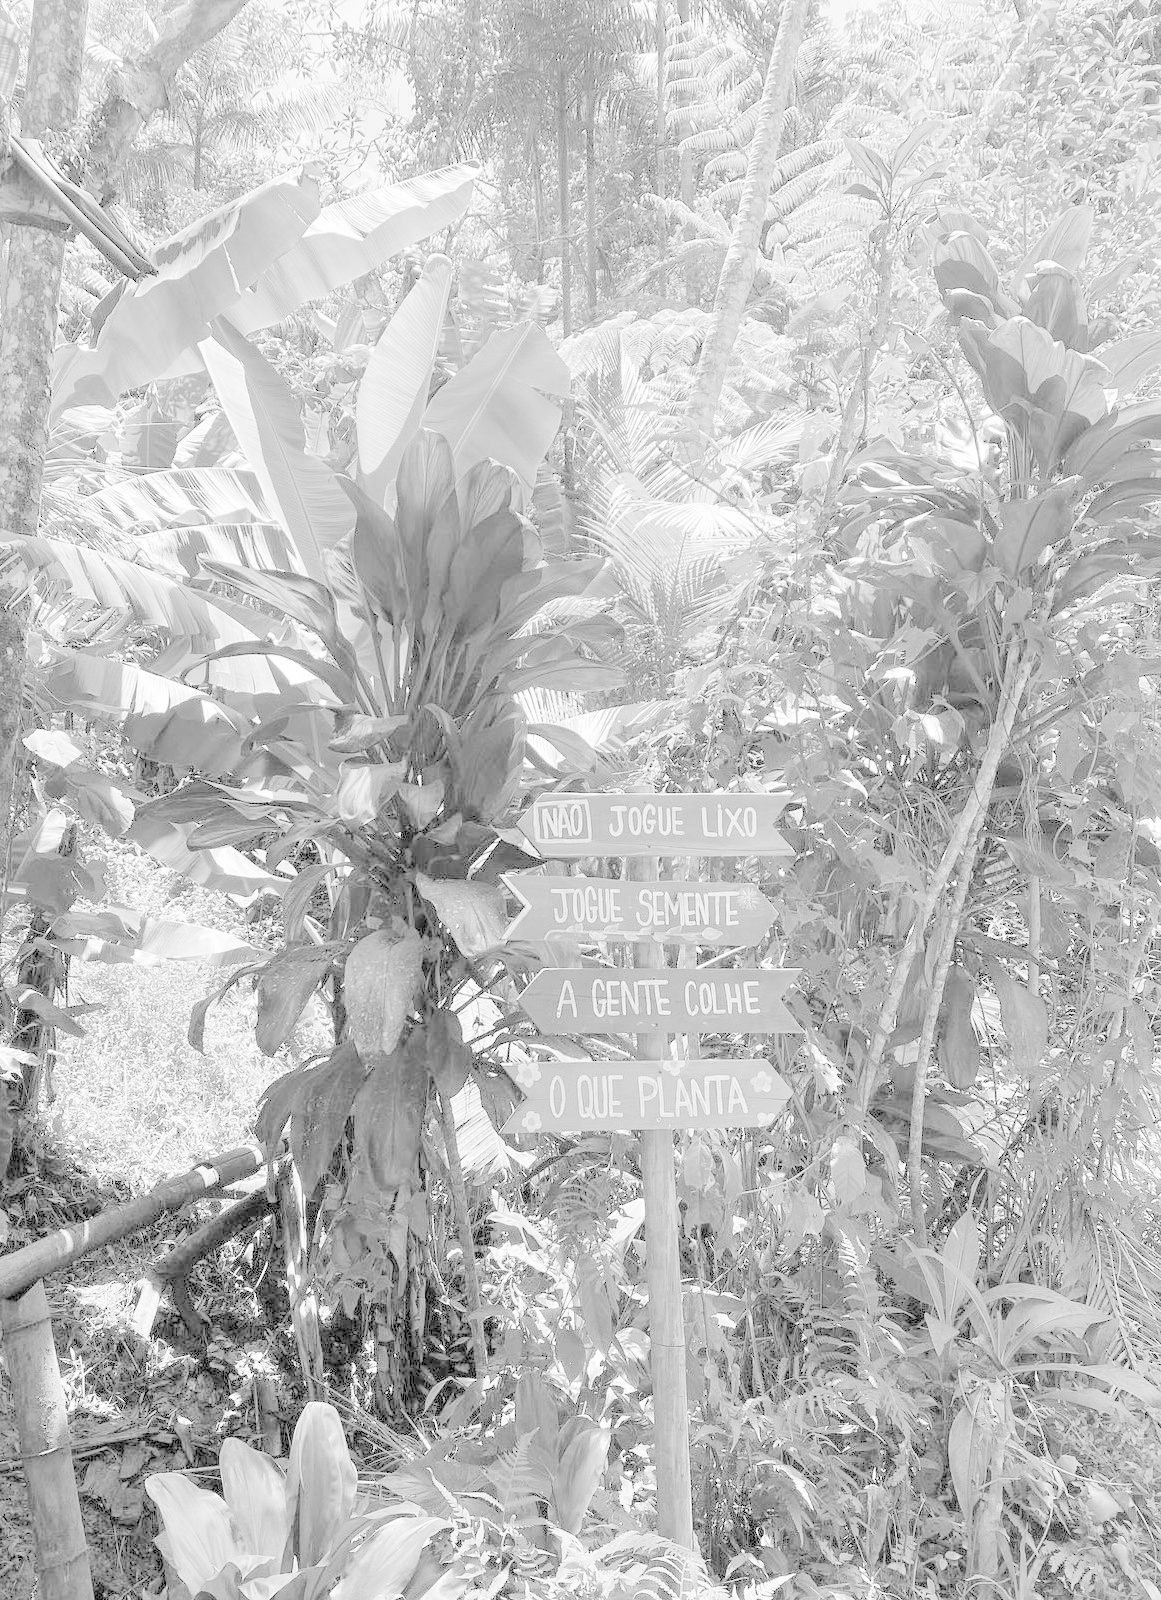 NÃO JOGUE LIXO
JOGUE SEMENTE
A GENTE COLHE
O QUE PLANTA